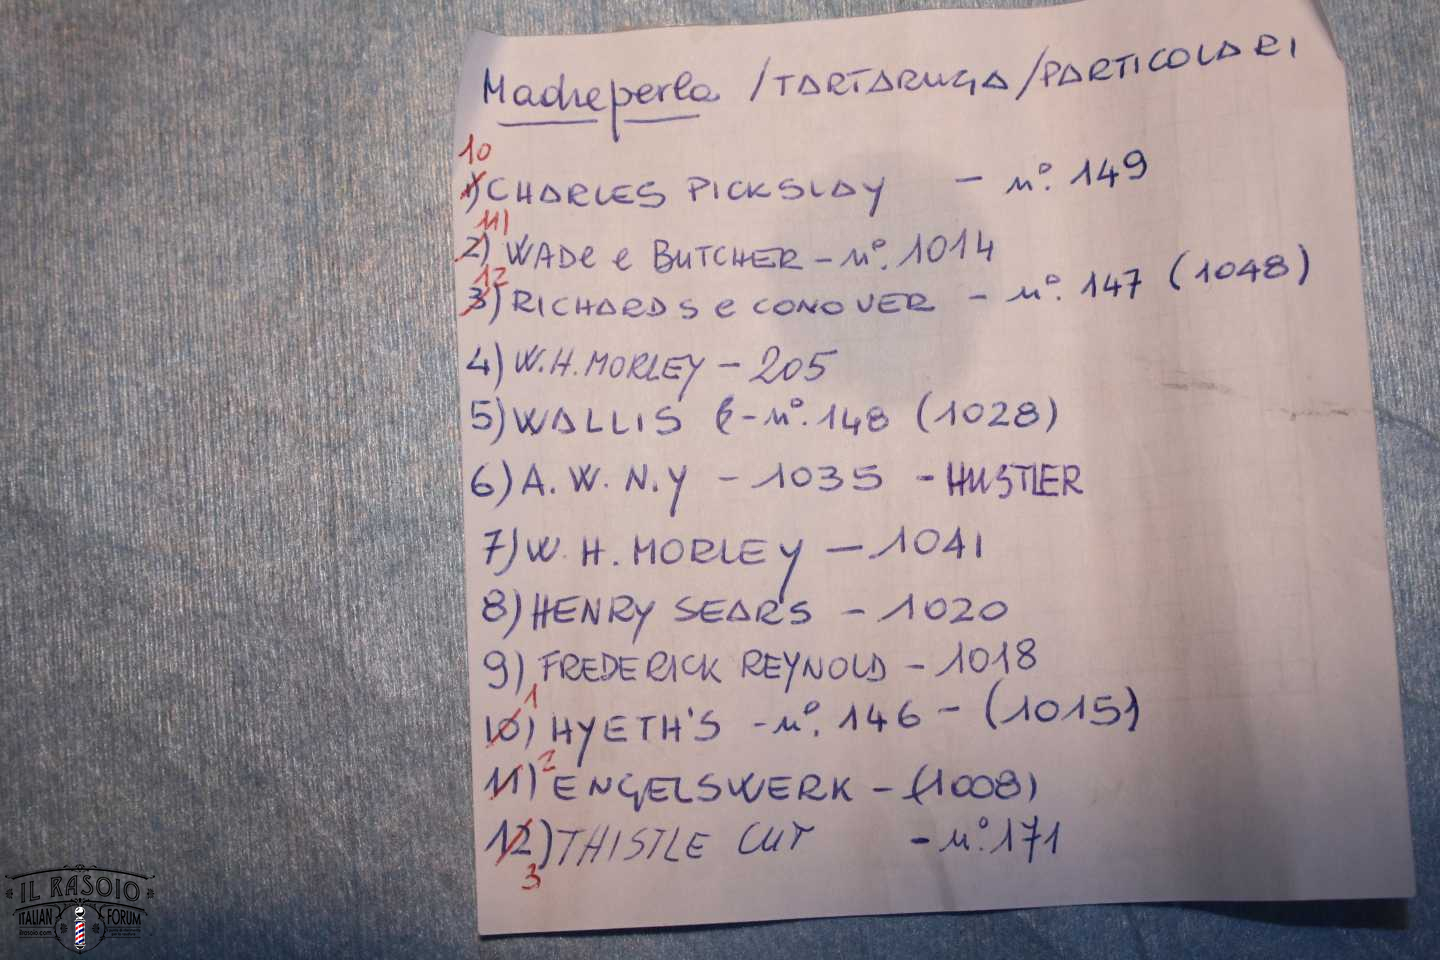 Madreperla / TARTARUGA / PARTICOLARI
10
1) CHARLES PICKSLAY - n°. 149
11
2) WADE e BUTCHER - n°. 1014
12
3) RICHARDS e CONOVER - n°. 147 (1048)
4) W.H. MORLEY - 205
5) WALLIS - n°. 148 (1028)
6) A. W. N.Y - 1035 - HUSTLER
7) W. H. MORLEY - 1041
8) HENRY SEARS - 1020
9) FREDERICK REYNOLD - 1018
1
10) HYETH'S - n°. 146 - (1015)
2
11) ENGELSWERK - (1008)
12) THISTLE CUT - n°. 171
3
IL RASOIO
ITALIAN FORUM
ilrasoio.com